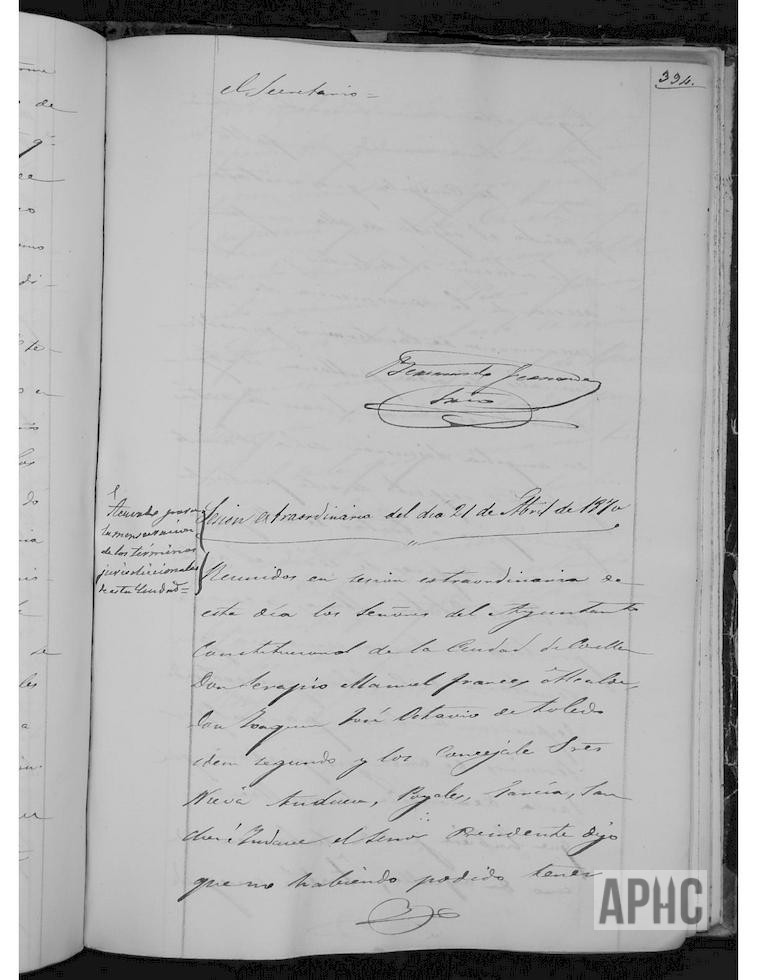 334.
el Secretario =
Acuerdo para
la mensuracion
de los terminos
jurisdiccionales
de esta Ciudad =
Sesion extraordinaria del dia 21 de Abril de 1870
Reunidos en sesion extraordinaria de
este dia los Señores del Ayuntamto
Constitucional de la Ciudad de
Don Serapio Manuel Frances Alcalde,
Don Joaquin José Octavio de Toledo
idem segundo y los Concejale Sres
Nieva Andueza, Royales, Garcia, San
el Señor Presidente dijo
que no habiendo podido tener
APHC